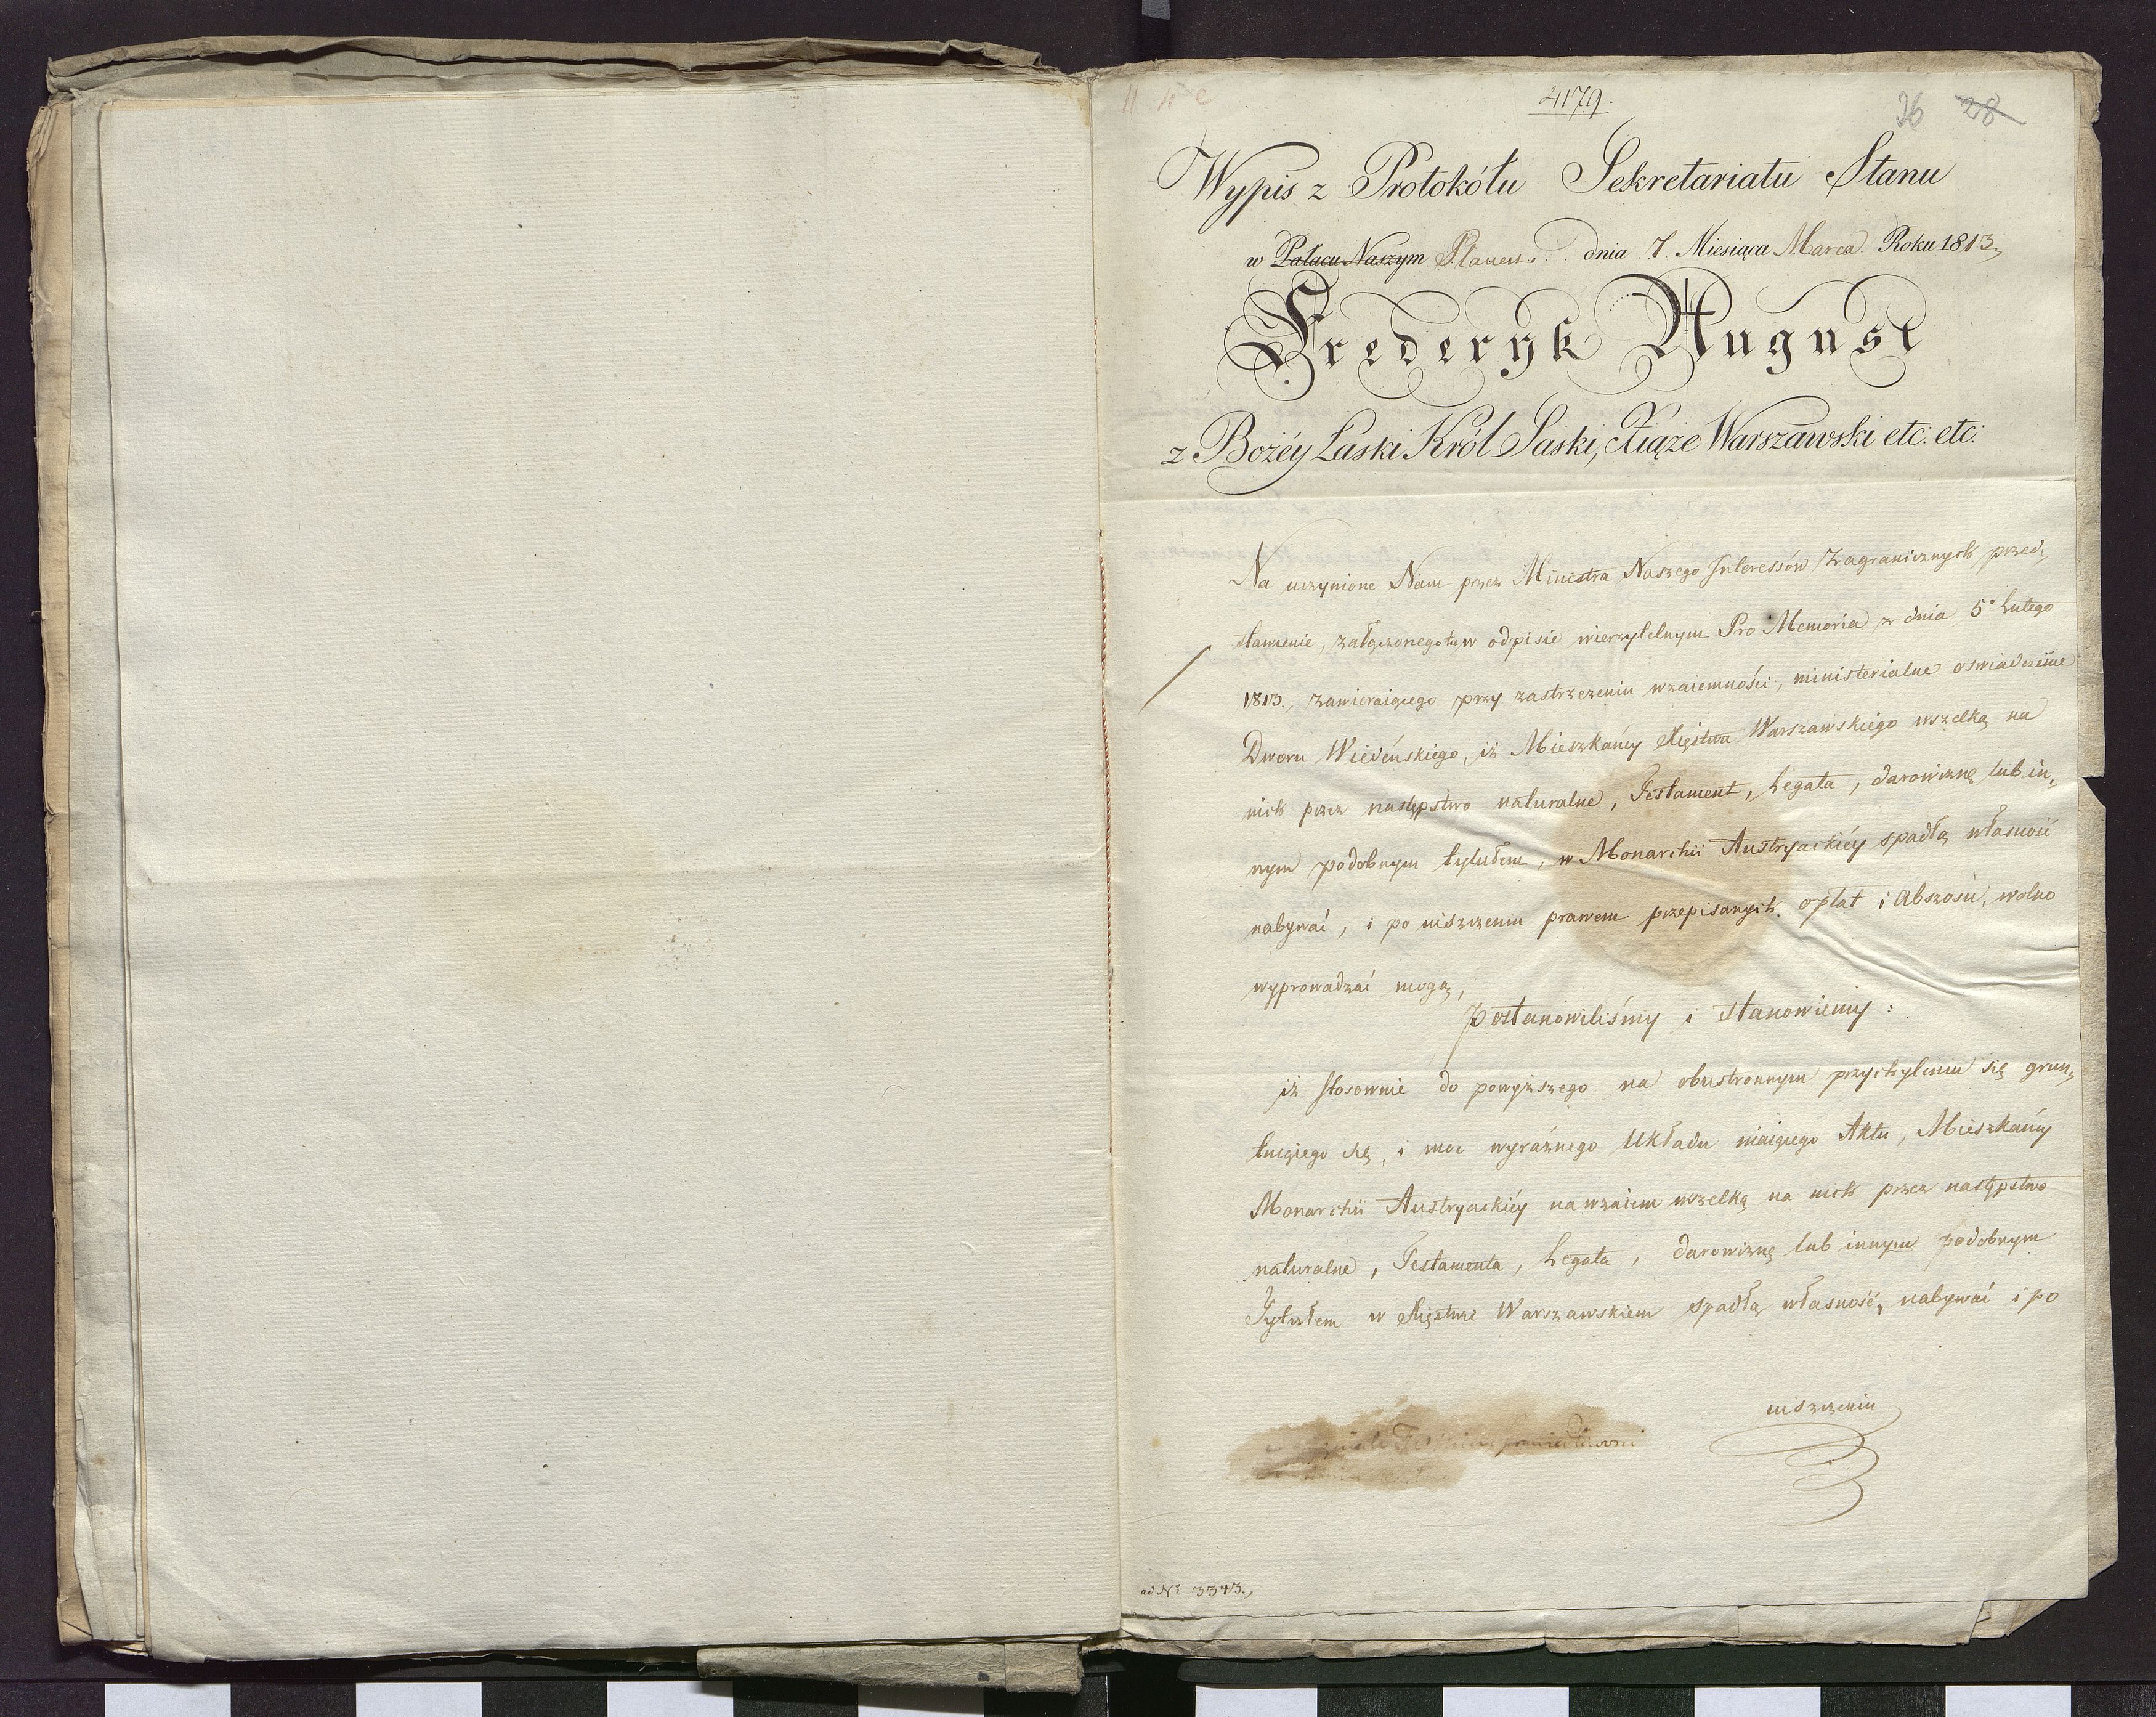 11 4 c
4179.
36 28
Wypis z Protokółu Sekretariatu Stanu
w Pałacu Naszym Plauen. dnia 7. Miesiąca Marca Roku 1813,
Frederyk August
z Bożéy Łaski Król Saski, Xiąże Warszawski etc. etc.
Na uczynione Nam przez Ministra Naszego Interessów Zagranicznych przed,
stawienie, załączonego tu w odpisie wierzytelnym Pro Memoria z dnia 5° Lutego
1813., zawieraiącego przy zastrzeżeniu wzaiemności, ministerialne oświadczenie
Dworu Wiedeńskiego, iż Mieszkańcy Xięstwa Warszawskiego wszelką na
nich przez następstwo naturalne, Testament, Legata, darowiznę lub in,
nym podobnym tytułem, w Monarchii Austryackiéy spadłą własność
nabywać, i po uiszczeniu prawem przepisanych opłat i Abszosu, wolno
wyprowadzać mogą,
Postanowiliśmy i stanowiemy:
iż stosownie do powyższego na obustronnym przychyleniu się grun,
tuiącego się, i moc wyraźnego Układu maiącego Aktu, Mieszkańcy
Monarchii Austryackiéy nawzaiem wszelką na nich przez następstwo
naturalne, Testamenta, Legata, darowiznę lub innym podobnym
Tytułem w Xięstwie Warszawskiem spadłą własność, nabywać i po
uiszczeniu
ad No 3343.,